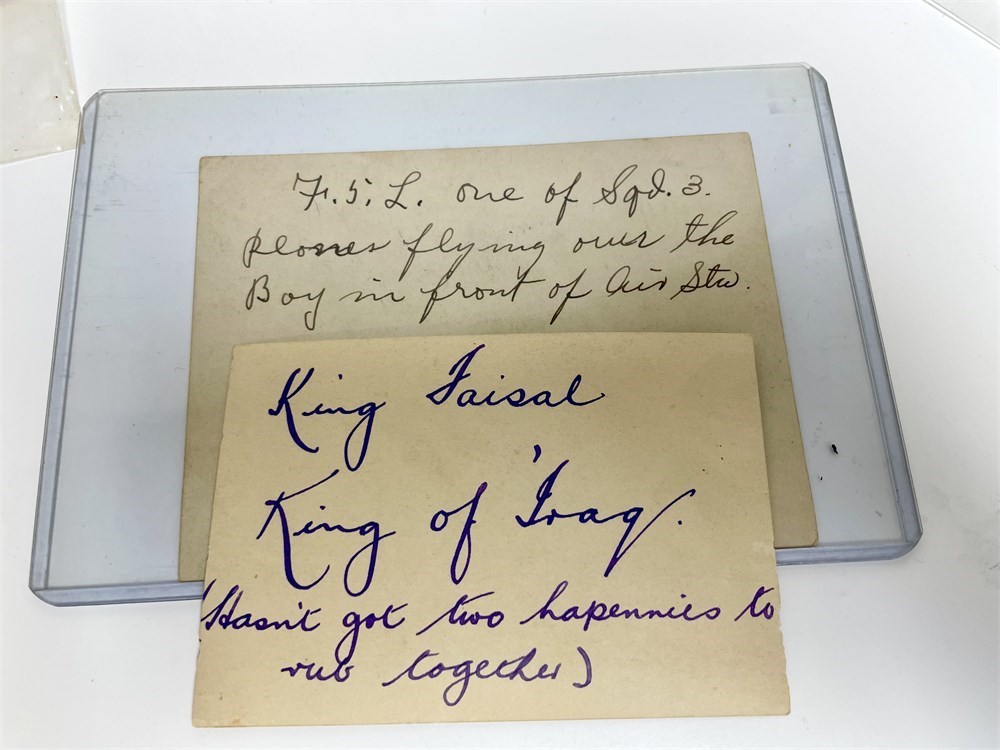 F.5.L. one of Sqd. 3.
planes flying over the
Bay in front of Air Sta.
King Faisal
King of 'Iraq.
(Hasn't got two hapennies to
rub together)